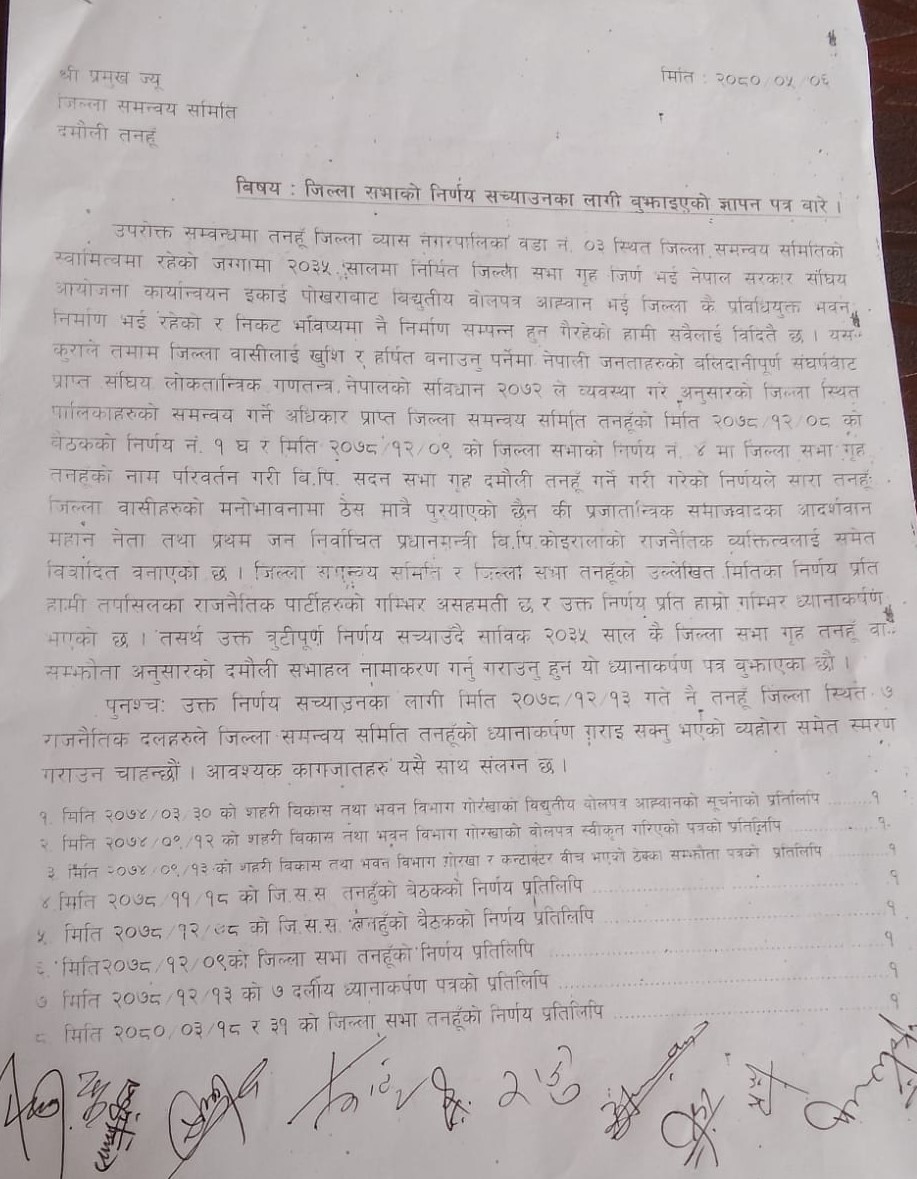 श्री प्रमुख ज्यू
मिति : २०८०/०५/०६
जिल्ला समन्वय समिति
दमौली तनहूँ
विषय : जिल्ला सभाको निर्णय सच्याउनका लागी बुझाइएको ज्ञापन पत्र बारे ।
उपरोक्त सम्वन्धमा तनहूँ जिल्ला व्यास नगरपालिका वडा नं. ०३ स्थित जिल्ला समन्वय समितिको
स्वामित्वमा रहेको जग्गामा २०३५ सालमा निर्मित जिल्ला सभा गृह जिर्ण भई नेपाल सरकार संघिय
आयोजना कार्यान्वयन इकाई पोखराबाट विद्युतीय वोलपत्र आह्वान भई जिल्ला कै प्रविधियुक्त भवन
निर्माण भई रहेको र निकट भविष्यमा नै निर्माण सम्पन्न हुन गैरहेको हामी सवैलाई विदितै छ । यस
कुराले तमाम जिल्ला वासीलाई खुशि र हर्षित बनाउनु पर्नेमा नेपाली जनताहरुको बलिदानीपूर्ण संघर्षवाट
प्राप्त संघिय लोकतान्त्रिक गणतन्त्र नेपालको संविधान २०७२ ले व्यवस्था गरे अनुसारको जिल्ला स्थित
पालिकाहरुको समन्वय गर्ने अधिकार प्राप्त जिल्ला समन्वय समिति तनहूँको मिति २०७८/१२/०८ को
बैठकको निर्णय नं. १ घ र मिति २०७८/१२/०९ को जिल्ला सभाको निर्णय नं. ४ मा जिल्ला सभा गृह
तनहूँको नाम परिवर्तन गरी बि.पि. सदन सभा गृह दमौली तनहूँ गर्ने गरी गरेको निर्णयले सारा तनहूँ
जिल्ला वासीहरुको मनोभावनामा ठेस मात्रै पुरयाएको छैन की प्रजातान्त्रिक समाजवादका आदर्शवान
महान नेता तथा प्रथम जन निर्वाचित प्रधानमन्त्री बि.पि.कोइरालाको राजनैतिक व्यक्तित्वलाई समेत
विवादित वनाएको छ । जिल्ला समन्वय समिति र जिल्ला सभा तनहूँको उल्लेखित मितिका निर्णय प्रति
हामी तपसिलका राजनैतिक पार्टीहरुको गम्भिर असहमती छ र उक्त निर्णय प्रति हाम्रो गम्भिर ध्यानाकर्षण
भएको छ । तसर्थ उक्त त्रुटीपूर्ण निर्णय सच्याउँदै साविक २०३५ साल कै जिल्ला सभा गृह तनहूँ वा
सम्झौता अनुसारको दमौली सभाहल नामाकरण गर्नु गराउनु हुन यो ध्यानाकर्षण पत्र वुझाएका छौ ।
पुनश्च: उक्त निर्णय सच्याउनका लागी मिति २०७८/१२/१३ गते नै तनहूँ जिल्ला स्थित ७
राजनैतिक दलहरुले जिल्ला समन्वय समिति तनहूँको ध्यानाकर्षण गराइ सक्नु भएको व्यहोरा समेत स्मरण
गराउन चाहन्छौं । आवश्यक कागजातहरु यसै साथ संलग्न छ ।
१. मिति २०७४/०३/३० को शहरी विकास तथा भवन विभाग गोरखाको विद्युतीय वोलपत्र आह्वानको सूचनाको प्रतिलिपि .......... १
२. मिति २०७४/०९/१२ को शहरी विकास तथा भवन विभाग गोरखाको वोलपत्र स्वीकृत गरिएको पत्रको प्रतिलिपि .......... १
३. मिति २०७४/०९/१३ को शहरी विकास तथा भवन विभाग गोरखा र कन्टाक्टर वीच भएको ठेक्का सम्झौता पत्रको प्रतिलिपि .......... १
४. मिति २०७८/११/१८ को जि.स.स तनहुँको बेठकको निर्णय प्रतिलिपि .......... १
५. मिति २०७८/१२/०८ को जि.स.स. तनहुँको बैठकको निर्णय प्रतिलिपि .......... १
६. मिति २०७८/१२/०९को जिल्ला सभा तनहूँको निर्णय प्रतिलिपि .......... १
७ मिति २०७८/१२/१३ को ७ दलीय ध्यानाकर्षण पत्रको प्रतिलिपि .......... १
८ मिति २०८०/०३/१८ र ३१ को जिल्ला सभा तनहूँको निर्णय प्रतिलिपि .......... १